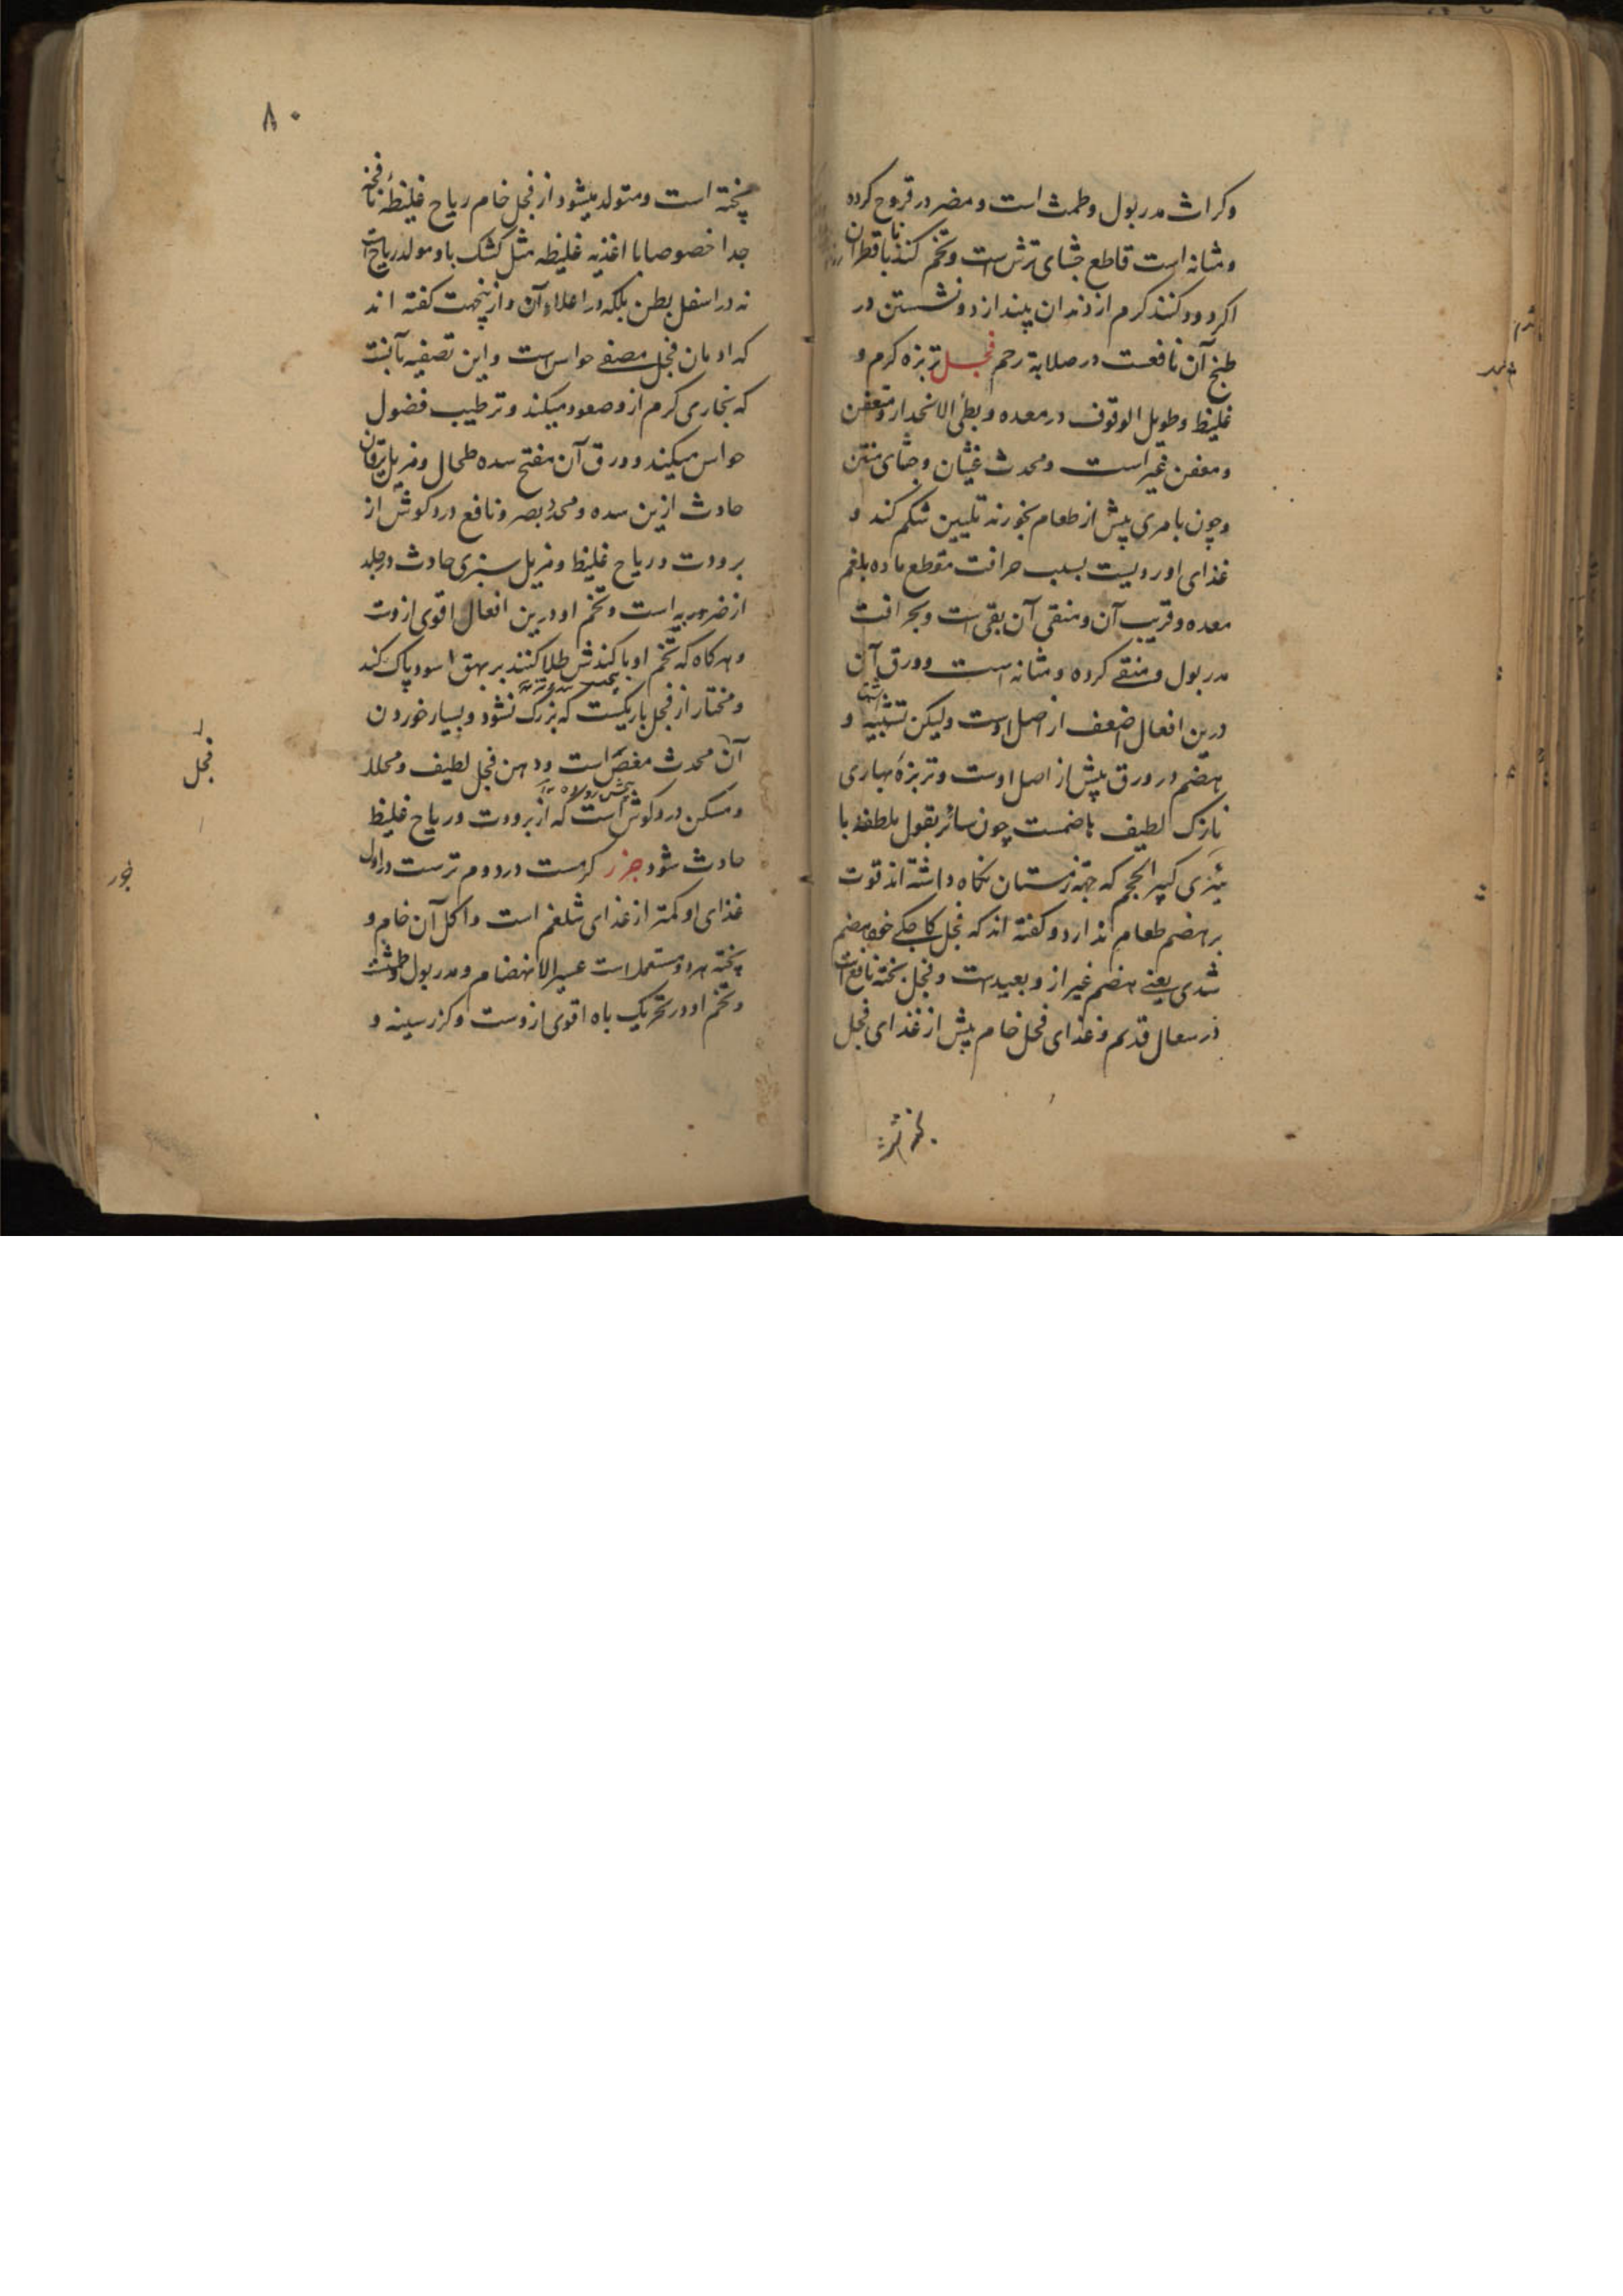 وکراث مدر بول وطمث است و مضر در قروح کرده
و مثانه است قاطع جشای ترش است و تخم کندنا با قطران
اکر دود کنند کرم از دندان بیندازد و نشستن در
طبخ آن نافعست در صلابة رحم فجل تربزه کرم و
غلیظ و طویل الوقوف در معده و بطئ الانحدار و متعفن
و معفن غیر است و محدث غثیان و جشای منتن
و چون با مری پیش از طعام بخورند تلیین شکم کند و
غذای او ردیست بسبب حرافت مقطع ماده بلغم
معده و قریب آن و منقی آن بقی است و بحرافت
مدر بول و منقی کرده و مثانه است و ورق آن
درین افعال اضعف از اصل اوست ولیکن تشبیه و
هضم در ورق بیش از اصل اوست و تربزه بهاری
نازک لطیف هاضمست چون سائر بقول ملطفه با
کبیر الحجم که جهة زمستان نکاه داشته اند قوت
بر هضم طعام ندارد و کفته اند که فجل هضم
شدی یعنی هضم غیر از و بعید است و فجل پخته نافع است
در سعال قدیم و غذای فجل خام بیش از غذای فجل
پخته است
۸۰
پخته است و متولد میشود از فجل خام ریاح غلیظهٔ نافخه
جدا خصوصا با اغذیه غلیظه مثل کشک با و مولد ریاح است
نه در اسفل بطن بلکه در اعلاء آن و ازینجهت کفته اند
که ادمان فجل مصفی حواس است و این تصفیه بآنست
که بخاری کرم از و صعود میکند و ترطیب فضول
حواس میکند و ورق آن مفتح سده طحال و مزیل یرقان
حادث ازین سده و محد بصر و نافع درد کوش از
برودت و ریاح غلیظ و مزیل سبزی حادث در جلد
از ضربه است و تخم او درین افعال اقوی ازوست
و هرکاه که تخم او با کندش طلا کنند بر بهق اسود پاک کند
و مختار از فجل باریکست که بزرک نشود و بسیار خوردن
آن محدث مغص است و دهن فجل لطیف و محلل
و مسکن درد کوش است که از برودت و ریاح غلیظ
حادث شود جزر کرمست در دوم ترست در اول
غذای او کمتر از غذای شلغم است و اکل آن خام و
پخته هر دو مستعمل است عسیر الانهضام و مدر بول و طمث
و تخم او در تحریک باه اقوی ازوست و کزر سینه و
فجل